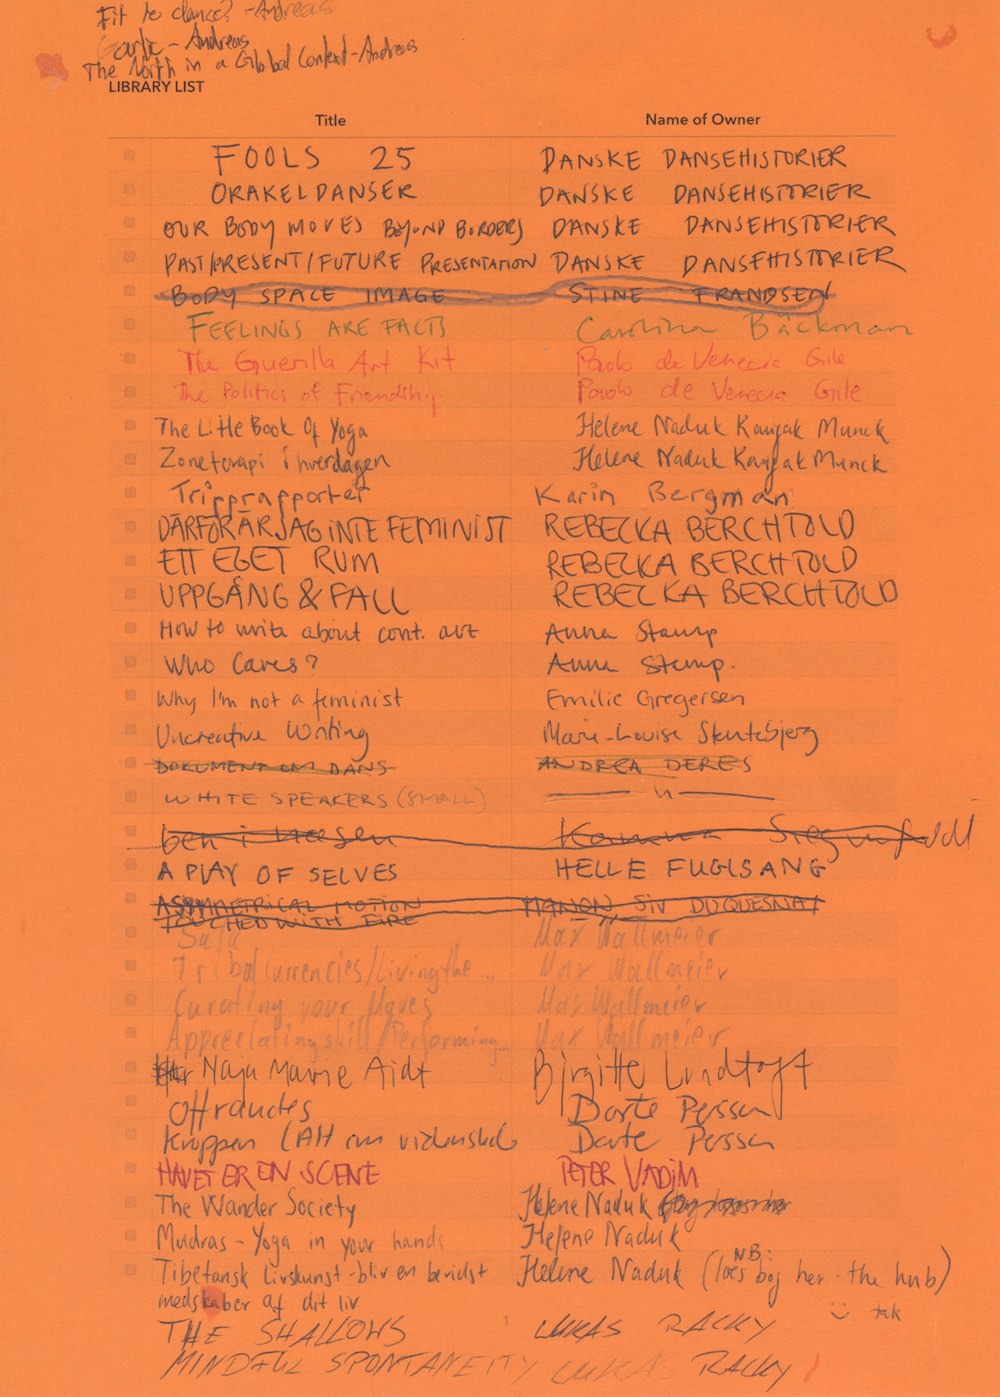 Fit to dance? -Andreas
Garlic - Andreas
The North in a Global Context-Andreas
LIBRARY LIST
Title Name of Owner
FOOLS 25 DANSKE DANSEHISTORIER
ORAKELDANSER DANSKE DANSEHISTORIER
OUR BODY MOVES BEYOND BORDERS DANSKE DANSEHISTORIER
PAST/PRESENT/FUTURE PRESENTATION DANSKE DANSEHISTORIER
BODY SPACE IMAGE STINE FRANDSEN
FEELINGS ARE FACTS Carolina Bäckman
The Guerilla Art Kit Paolo de Venecia Gile
The Politics of Friendship Paolo de Venecia Gile
The Little Book Of Yoga Helene Naduk Kanjak Munck
Zoneterapi i hverdagen Helene Naduk Kanjak Munck
Tripprapporter Karin Bergman
DÄRFÖR ÄR JAG INTE FEMINIST REBECKA BERCHTOLD
ETT EGET RUM REBECKA BERCHTOLD
UPPGÅNG & FALL REBECKA BERCHTOLD
How to write about cont. art Anna Stamp
Who Cares? Anna Stamp.
Why I'm not a feminist Emilie Gregersen
Uncreative Writing Marie-Louise Stentebjerg
DOKUMENT OM DANS ANDREA DERES
WHITE SPEAKERS (SMALL) — 11 —
ben i næsen
A PLAY OF SELVES HELLE FUGLSANG
ASYMMETRICAL MOTION MANON SIV DUQUESNAY
TOUCHED WITH FIRE
Max Wallmeier
Tribal Currencies/Living the ... Max Wallmeier
Curating your Moves Max Wallmeier
Appreciating skill/Performing... Max Wallmeier
Naja Marie Aidt Birgitte Lundtoft
Dorte Persson
Kroppen Dorte Persson
HAVET ER EN SCENE PETER VADIM
The Wander Society Helene Naduk
Mudras - Yoga in your hands Helene Naduk
Tibetansk Livskunst - bliv en bevidst Helene Naduk (NB: læs bog her - the hub)
medskaber af dit liv :) tak
THE SHALLOWS LUKAS RACKY
MINDFUL SPONTANEITY LUKAS RACKY